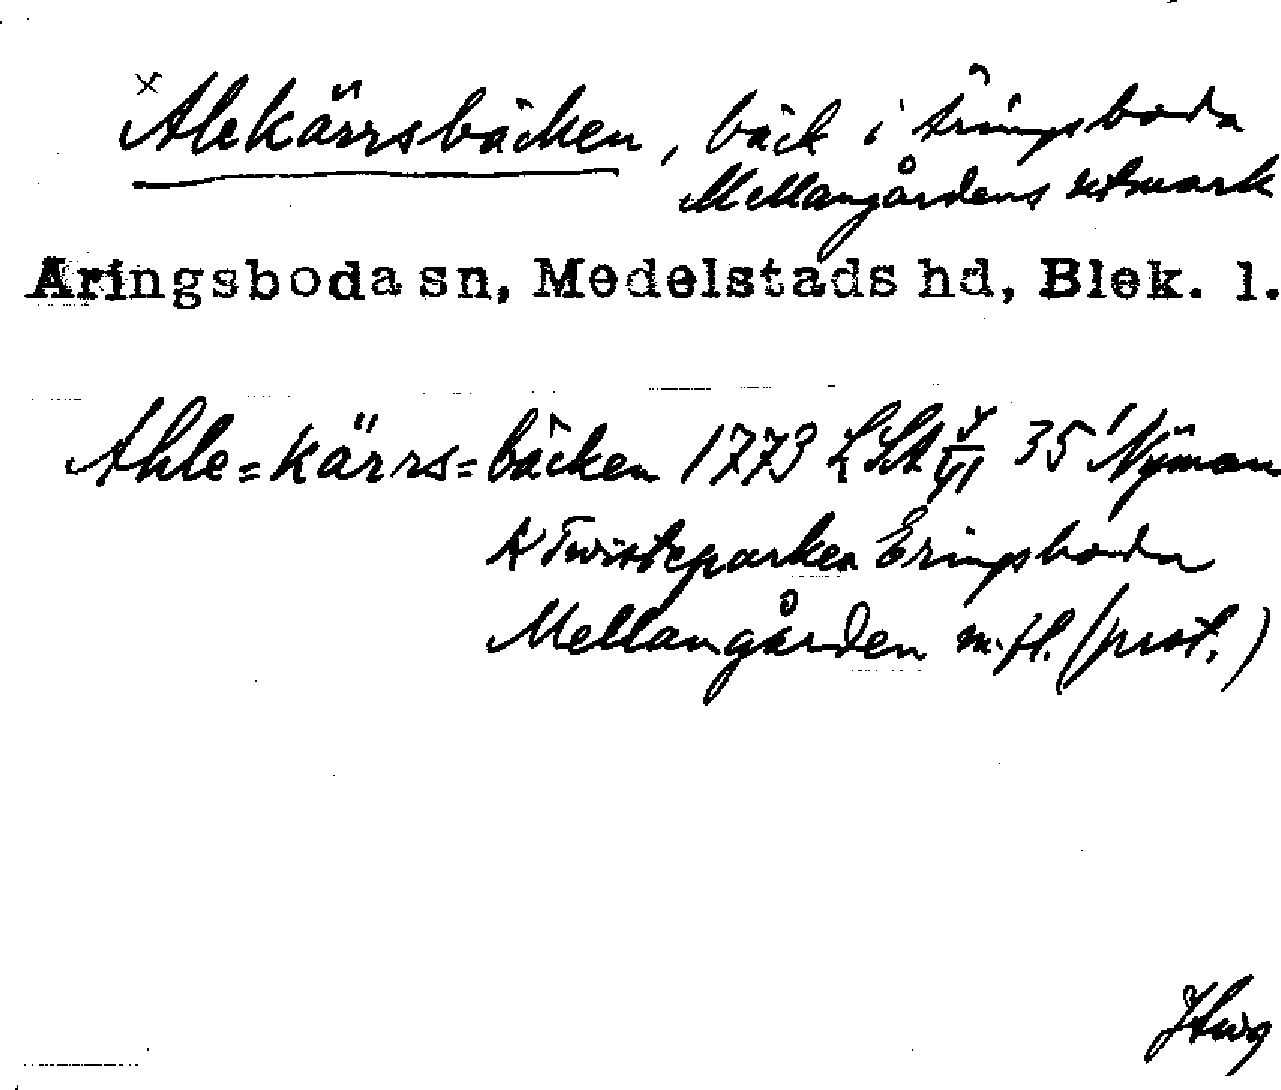 × Alekärrsbäcken, bäck i Åringsboda
Mellangårdens utmark
Aringsboda sn, Medelstads hd, Blek. l.
Ahle=kärrs=bäcken 1773 LSA 35 Nyman
K Twisteparken Eringsboda
Mellangården m.fl. (prot.)